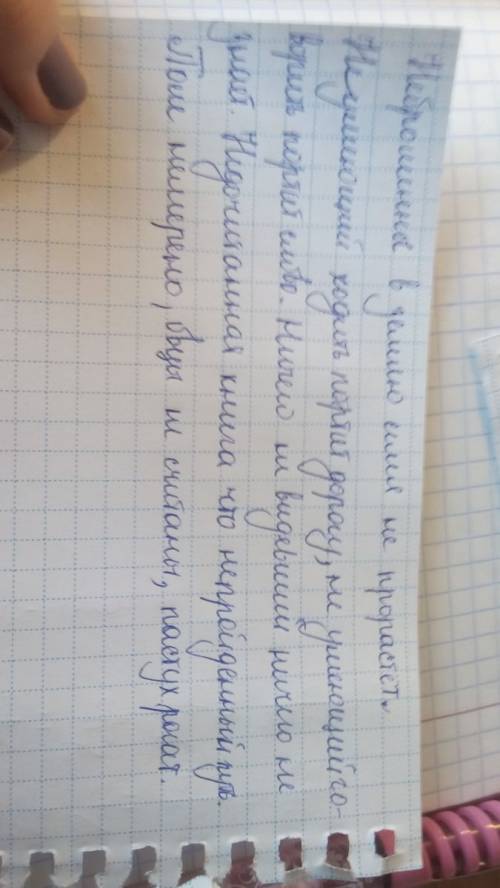 Неброшенное в землю семя не прорастёт.
Не умеющий ходить портит дорогу, не умеющий го-
ворить портит слово. Ничего не видевший ничего не
знает. Недочитанная книга что непройденный путь.
Поле не меряно, овцы не считаны, пастух рогат.